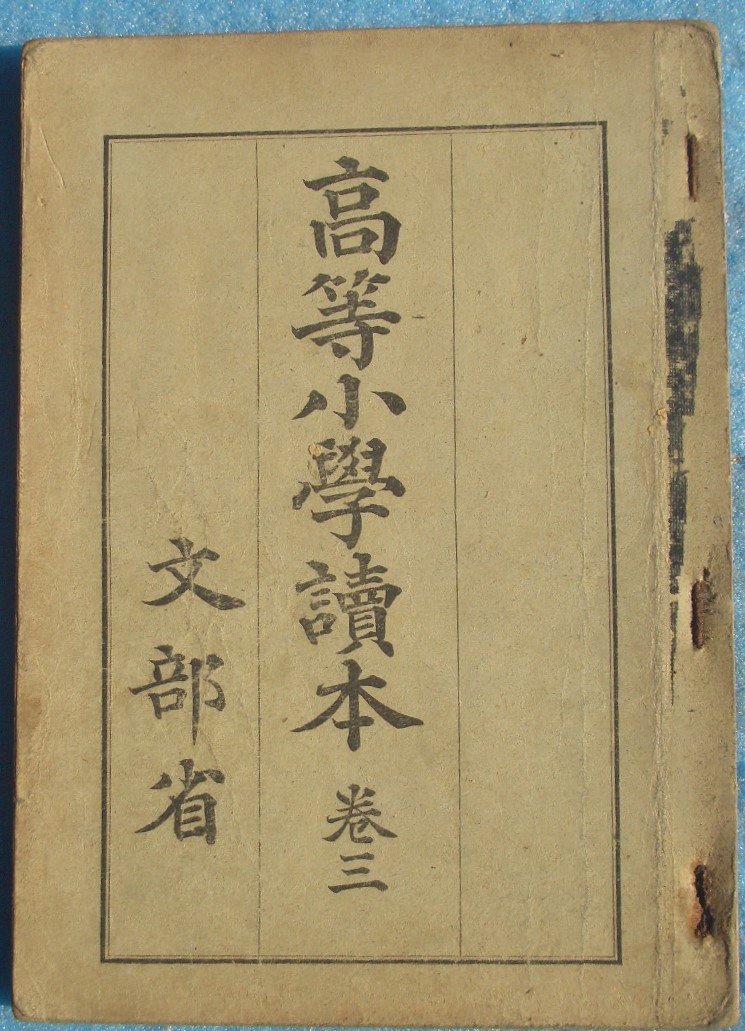 高等小學讀本 卷三
文部省